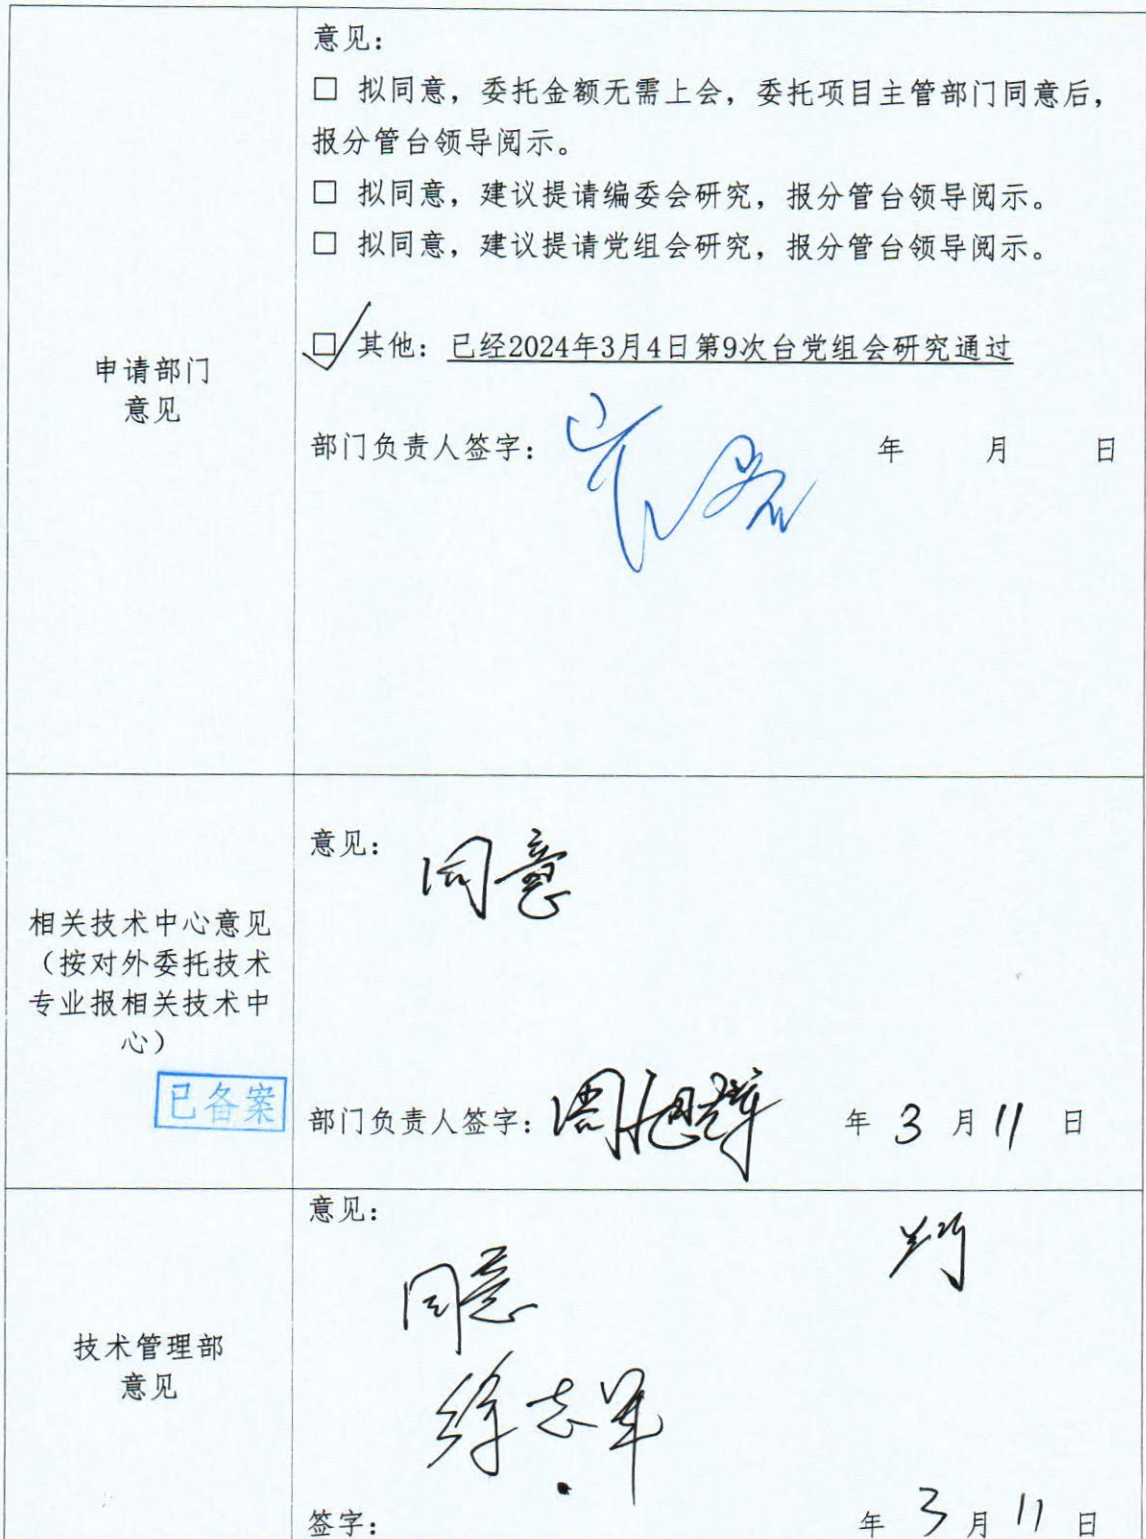 意见：
□ 拟同意，委托金额无需上会，委托项目主管部门同意后，
报分管台领导阅示。
□ 拟同意，建议提请编委会研究，报分管台领导阅示。
□ 拟同意，建议提请党组会研究，报分管台领导阅示。
□ 其他：已经2024年3月4日第9次台党组会研究通过
申请部门
意见
部门负责人签字： 年 月 日
意见：
同意
相关技术中心意见
（按对外委托技术
专业报相关技术中
心）
已备案
部门负责人签字： 年 3 月 11 日
意见：
同意
技术管理部
意见
徐志军
签字： 年 3 月 11 日